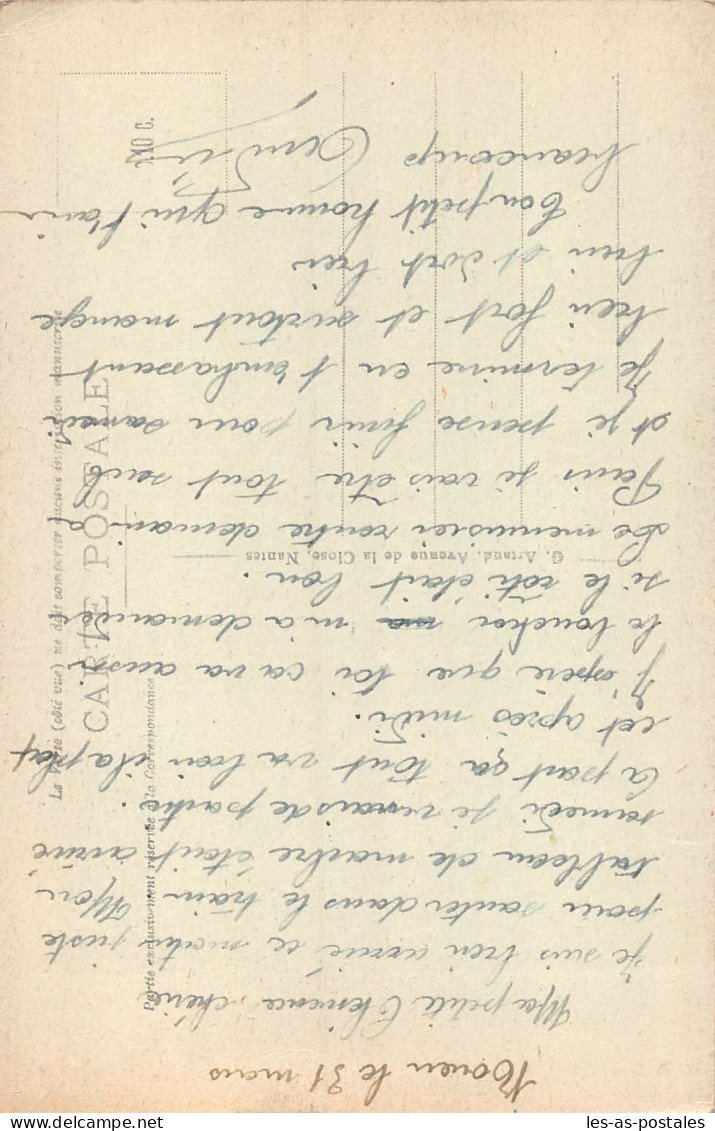 Rouen le 31 mars
Ma petite Clémence chérie
Je suis bien arrivé ce matin juste
pour sauter dans le train Mon
tableau de marbre était arrivé
samedi je vais de partie
à part ça tout va bien il a plut
cet après midi.
J'espere que toi ca va aussi
le boucher m'a demander
si le roti était bon.
Le menuisier rentre demain
Puis je vais etre tout seul
et je pense finir pour samedi
Je termine en t'embrassant
bien fort et surtout mange
bien et dort bien
Ton petit homme qui t'aime
beaucoup
CARTE POSTALE
Le Recto (côté vue) ne doit comporter aucune inscription manuscrite
Partie exclusivement réservée à la Correspondance
G. Artaud, Avenue de la Close, Nantes
10 C.
les-as-postales.com